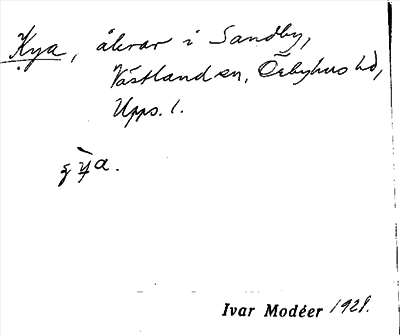 Kya, åkrar i Sandby,
Västland sn, Örbyhus hd,
Upps. l.
ya.
Ivar Modéer 1928.